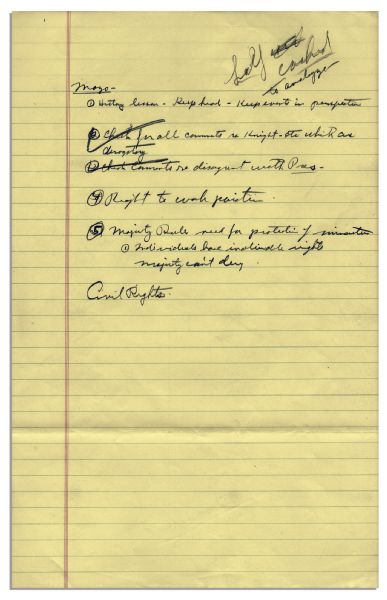 to analyze
① History lesson - Keep head - Keep events in perspective
② Check for all comments re Knight - etc which are
derogatory
Check comments re disagreement with Pres -
④ Right to work position
⑤ Majority Rule need for protection of minorities
① Individuals have inalienable rights
majority can't deny.
Civil Rights.